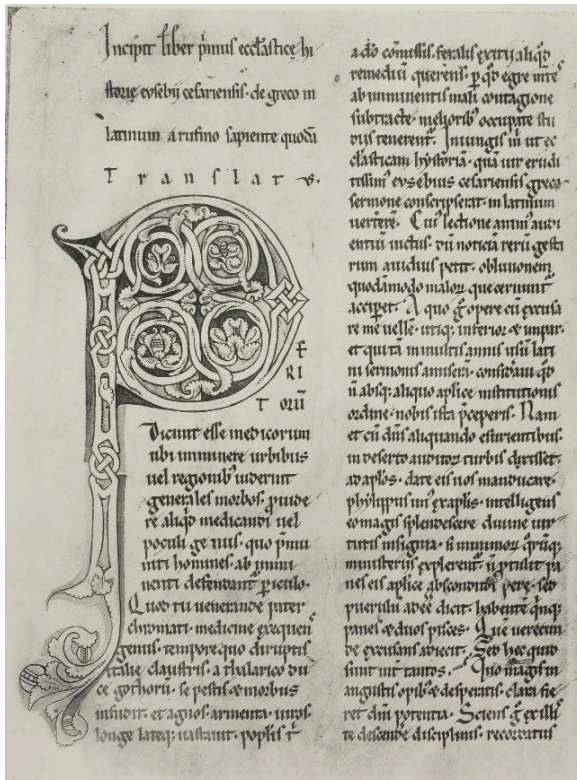 Incipit liber p̄mus eccl̄astice hi
storie eusebij cesariensis. de greco in
latinum a rufino sapiente quodā
Translatus.
P E
RI
TORŪ
Dicunt esse medicorum
ubi imminere urbibus
uel regionib; uiderint
generales morbos. p̄uide
re aliqd̄ medicandi uel
poculi genus. quo p̄mu
niti homines. ab immi
nenti defendant̄ periculo.
Quod tu uenerande pater
chromati. medicine exequens
genus. tempore quo diruptis
italie claustris. a thalarico du
ce gothorū. se pestis & morbus
infudit. et agros. armenta. uiros.
longe lateq; uastauit. poplis t̄
a dō cōmissis. feralis exitij aliqd̄
remediū querens. p qd̄ egre m̄te
ab imminentis mali contagione
subtracte. meliorib; occupate stu
dijs tenerent̄. Iniungis m̄ ut ec
clasticam hystoriā. quā uir erudi
tissim; eusebius cesariensis greco
sermone conscripserat. in latinum
uerterē. Cui; lectione anim; audi
entiū uictus. dū noticia rerū gesta
rum auidius petit. obliuionem
quodāmodo malorꝝ que gerunt̄
acciperet. A quo g̊ opere cū excusa
re me uelle. utiq; inferior & impar.
et qui tā in multis annis usū lati
ni sermonis amiserā. consideraui qd̄
n̄ absq; aliquo ap̄lice institutionis
ordine. nobis ista p̄ceperis. Nam
et cū dn̄s aliquando esurientibus.
in deserto auditorꝝ turbis dixisset.
ad ap̄los. date eis uos manducare.
phylippus un; ex ap̄lis. intelligens
eo magis splendescere diuine uir
tutis insignia. si minimorꝝ quoq;
ministerijs explerent̄. n̄ p̄tulit pa
nes eis ap̄lice abscondi
puerulū adeē dicit. habentē quinq;
panes & duos pisces. Quē uerecun
de excusans adiecit. Sed hec quid
sunt int̄ tantos. Quo magis in
angustis opib; & desperatis. clara fie
ret dn̄i potentia. Sciens g̊ ex illi;
te descende disciplinis. recordatus